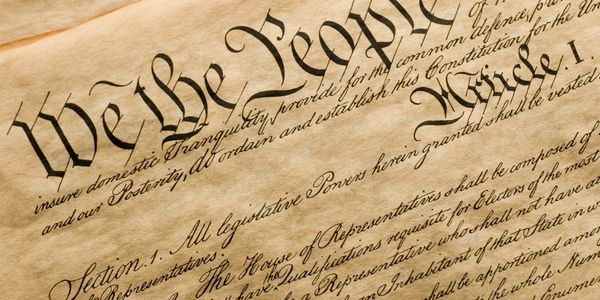 We the People
of
insure domestic Tranquility, provide for the common defence,
and our Posterity, do ordain and establish this Constitution for the
Article. I.
Section. 1. All legislative Powers herein granted shall be vested
Representatives.
The House of Representatives shall be composed of
have the Qualifications requisite for Electors of the most
Representative who shall not have
an Inhabitant of that State in
shall be apportioned among
the whole Num